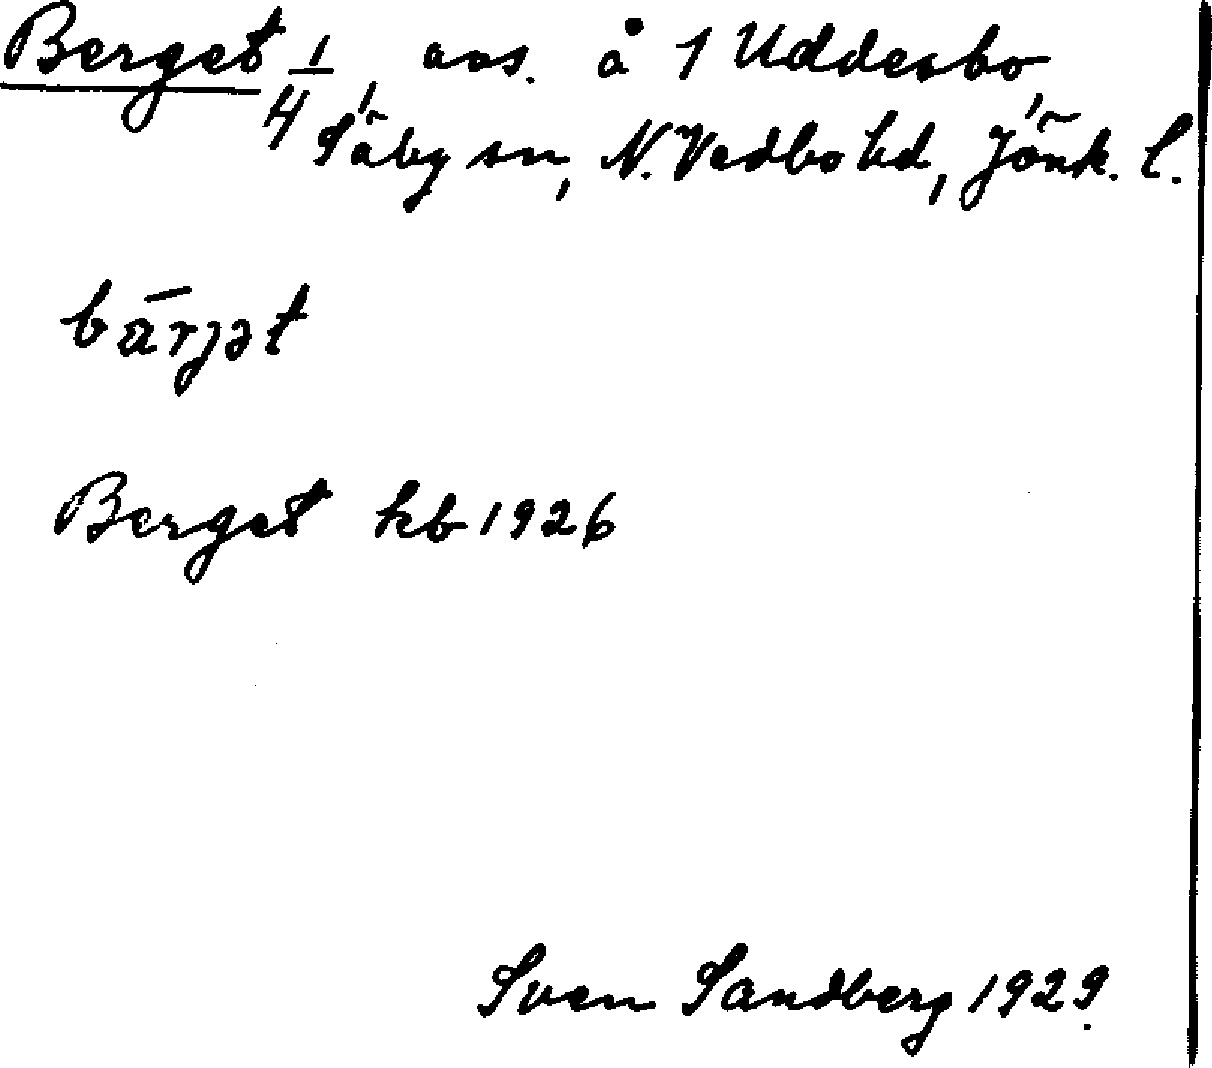 Berget 1/4, avs. å 1 Uddesbo,
Säby sn, N. Vedbo hd, Jönk. l.
bärjət
Berget kb 1926
Sven Sandberg 1929.